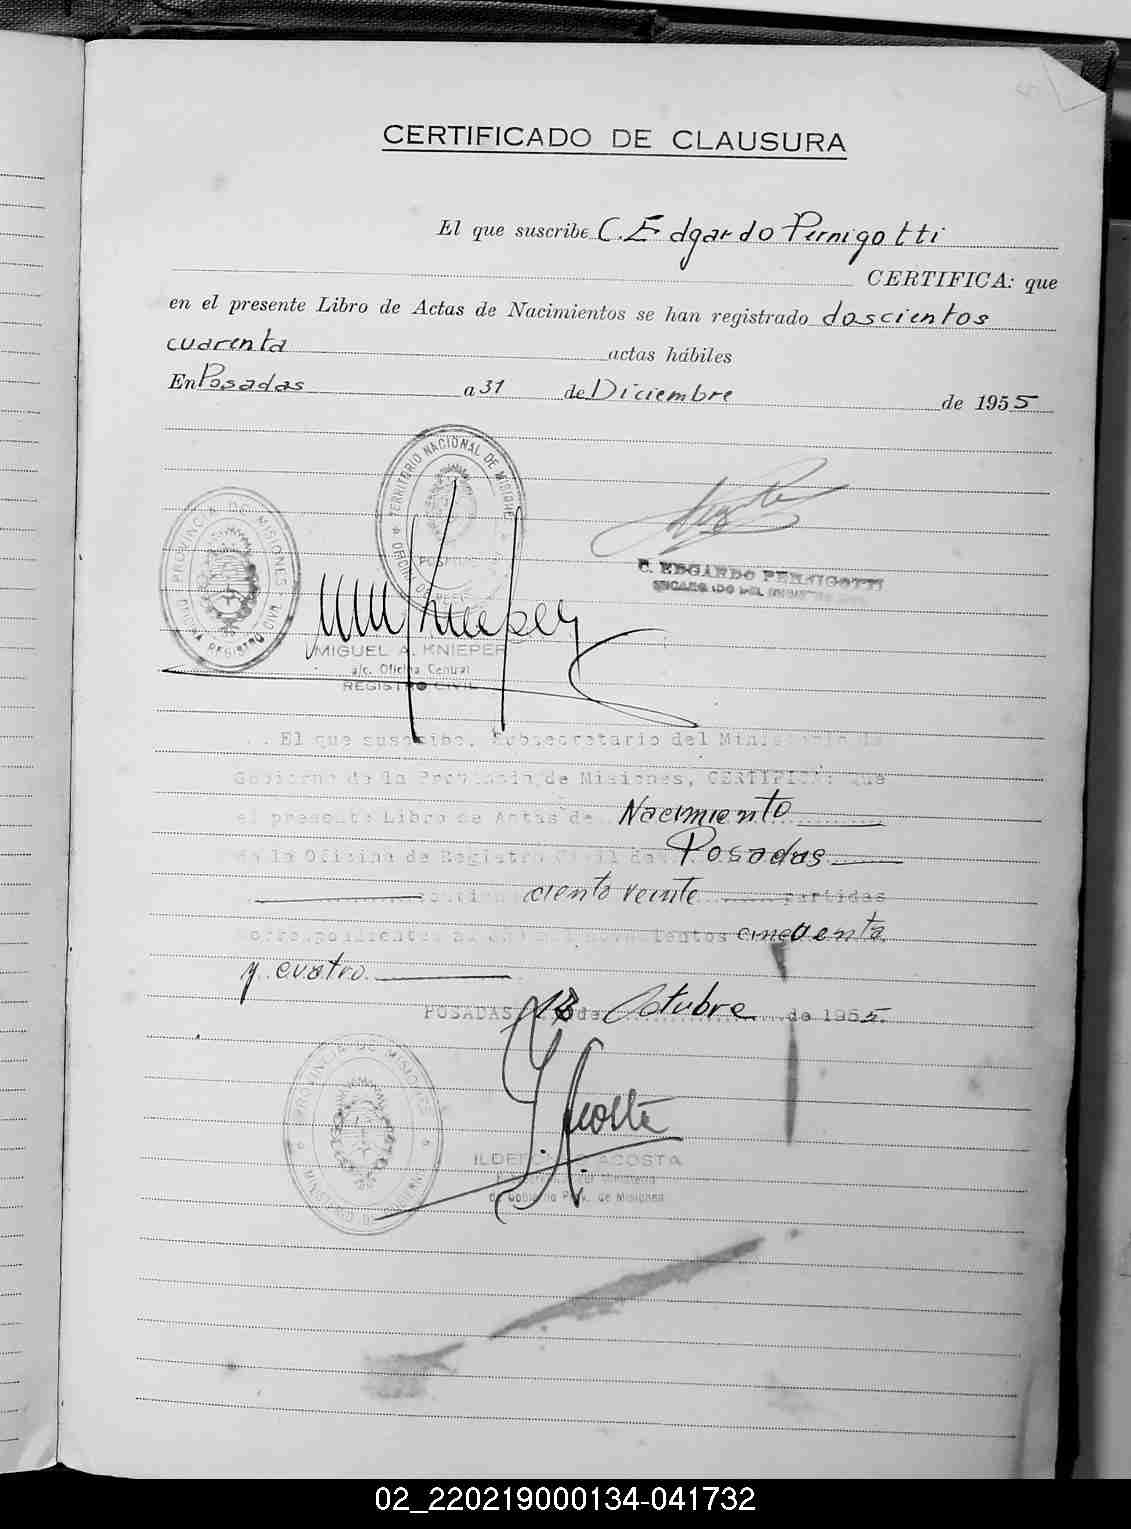 CERTIFICADO DE CLAUSURA
El que suscribe C. Edgardo Pernigotti
CERTIFICA: que
en el presente Libro de Actas de Nacimientos se han registrado doscientos
cuarenta actas hábiles
En Posadas a 31 de Diciembre de 1955
TERRITORIO NACIONAL DE MISIONES
POSADAS
PROVINCIA DE MISIONES
OFICINA REGISTRO CIVIL
C. EDGARDO PERNIGOTTI
ENCARGADO DEL
MIGUEL A. KNIEPER
a/c. Oficina Central
REGISTRO CIVIL
El que suscribe, Subsecretario del Ministerio de
Gobierno de la Provincia de Misiones, CERTIFICA: que
el presente Libro de Actas de Nacimiento
de la Oficina de Registro Civil de Posadas
contiene ciento veinte partidas
correspondientes al año mil novecientos cincuenta
y cuatro.
POSADAS, 18 de Octubre de 1955.
PROVINCIA DE MISIONES
I. Acosta
ILDEFONSO ACOSTA
Subsecretario del Ministerio
de Gobierno Prov. de Misiones
02_220219000134-041732